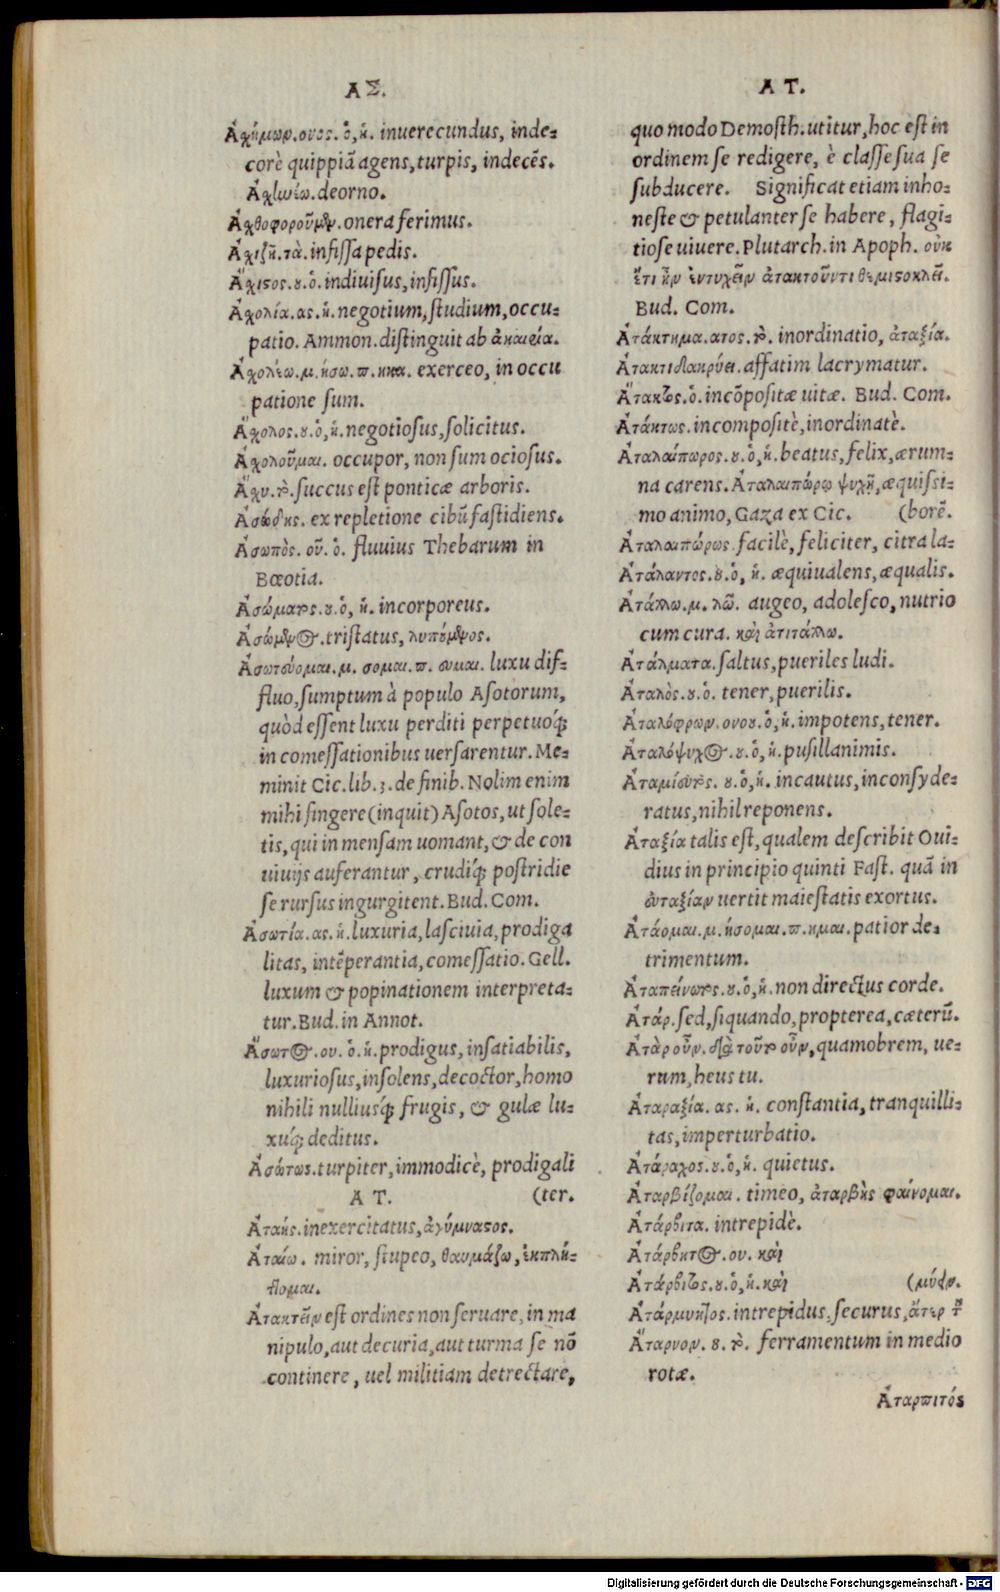 ΑΣ.
Ἀχήμων.ονος.ὁ,ἡ. inuerecundus, inde=
corè quippiã agens, turpis, indecẽs.
Ἀχλυέω. deorno.
Ἀχθοφοροῦμεν. onera ferimus.
Ἀχιζῆ.τὰ. infissa pedis.
Ἄχιςος.ȣ.ὁ. indiuisus, infissus.
Ἀχολία.ας.ἡ. negotium, studium, occu=
patio. Ammon. distinguit ab ἀκαιρία.
Ἀχολέω.μ.ήσω.π.ηκα. exerceo, in occu
patione sum.
Ἄχολος.ȣ.ὁ,ἡ. negotiosus, solicitus.
Ἀχολοῦμαι. occupor, non sum ociosus.
Ἄχυ.τὸ. succus est ponticæ arboris.
Ἀσώδης. ex repletione cibũ fastidiens.
Ἀσωπὸς. οῦ. ὁ. fluuius Thebarum in
Bœotia.
Ἀσώματος.ȣ.ὁ, ἡ. incorporeus.
Ἀσώμενος. tristatus, λυπούμενος.
Ἀσωτεύομαι. μ. σομαι. π. ευμαι. luxu dif=
fluo, sumptum à populo Asotorum,
quòd essent luxu perditi perpetuóq;
in comessationibus uersarentur. Me=
minit Cic. lib. 3. de finib. Nolim enim
mihi fingere (inquit) Asotos, ut sole=
tis, qui in mensam uomant, & de con
uiuijs auferantur, crudiq́; postridie
se rursus ingurgitent. Bud. Com.
Ἀσωτία.ας.ἡ. luxuria, lasciuia, prodiga
litas, intẽperantia, comessatio. Gell.
luxum & popinationem interpreta=
tur. Bud. in Annot.
Ἄσωτος.ου.ὁ.ἡ. prodigus, insatiabilis,
luxuriosus, insolens, decoctor, homo
nihili nulliusq́; frugis, & gulæ lu=
xuiq́; deditus.
Ἀσώτως. turpiter, immodicè, prodigali
ΑΤ. (ter.
Ἀταής. inexercitatus, ἀγύμναςος.
Ἀταίω. miror, stupeo, θαυμάζω, ἐκπλήτ=
τομαι.
Ἀτακτεῖν est ordines non seruare, in ma
nipulo, aut decuria, aut turma se nõ
continere, uel militiam detrectare,
ΑΤ.
quo modo Demosth. utitur, hoc est in
ordinem se redigere, è classe sua se
subducere. Significat etiam inho=
neste & petulanter se habere, flagi=
tiose uiuere. Plutarch. in Apoph. οὐκ
ἔτι ἦν ἐντυχεῖν ἀτακτοῦντι θεμιςοκλεῖ.
Bud. Com.
Ἀτάκτημα.ατος.τὸ. inordinatio, ἀταξία.
Ἀτακτὶ δακρύει. affatim lacrymatur.
Ἄτακτος.ὁ. incõpositæ uitæ. Bud. Com.
Ἀτάκτως. incompositè, inordinatè.
Ἀταλαίπωρος.ȣ.ὁ,ἡ. beatus, felix, ærum=
na carens. Ἀταλαιπώρῳ ψυχῇ, æquissi=
mo animo, Gaza ex Cic. (borẽ.
Ἀταλαιπώρως. facilè, feliciter, citra la=
Ἀτάλαντος.ȣ.ὁ, ἡ. æquiualens, æqualis.
Ἀτάλλω. μ. λῶ. augeo, adolesco, nutrio
cum cura. καὶ ἀτιτάλλω.
Ἀτάλματα. saltus, pueriles ludi.
Ἀταλὸς.ȣ.ὁ. tener, puerilis.
Ἀταλόφρων.ονου.ὁ,ἡ. impotens, tener.
Ἀταλόψυχος.ȣ.ὁ,ἡ. pusillanimis.
Ἀταμίευτος. ȣ.ὁ,ἡ. incautus, inconsyde=
ratus, nihil reponens.
Ἀταξία talis est, qualem describit Oui=
dius in principio quinti Fast. quã in
εὐταξίαν uertit maiestatis exortus.
Ἀτάομαι.μ.ήσομαι.π.ημαι. patior de=
trimentum.
Ἀταπείνωτος.ȣ.ὁ,ἡ. non directus corde.
Ἀτάρ. sed, siquando, propterea, cæterũ.
Ἀτὰρ οὖν. διὰ τοῦτο οὖν, quamobrem, ue=
rum, heus tu.
Ἀταραξία. ας. ἡ. constantia, tranquilli=
tas, imperturbatio.
Ἀτάραχος.ȣ.ὁ,ἡ. quietus.
Ἀταρβίζομαι. timeo, ἀταρβὴς φαίνομαι.
Ἀτάρβιτα. intrepidè.
Ἀτάρβητος.ου. καὶ
Ἀτάρβιτος.ȣ.ὁ,ἡ. καὶ (μύειν.
Ἀτάρμυκτος. intrepidus, securus, ἄτερ τῦ
Ἄταρνον. ȣ. τὸ. ferramentum in medio
rotæ.
Ἀταρπιτός
Digitalisierung gefördert durch die Deutsche Forschungsgemeinschaft - DFG